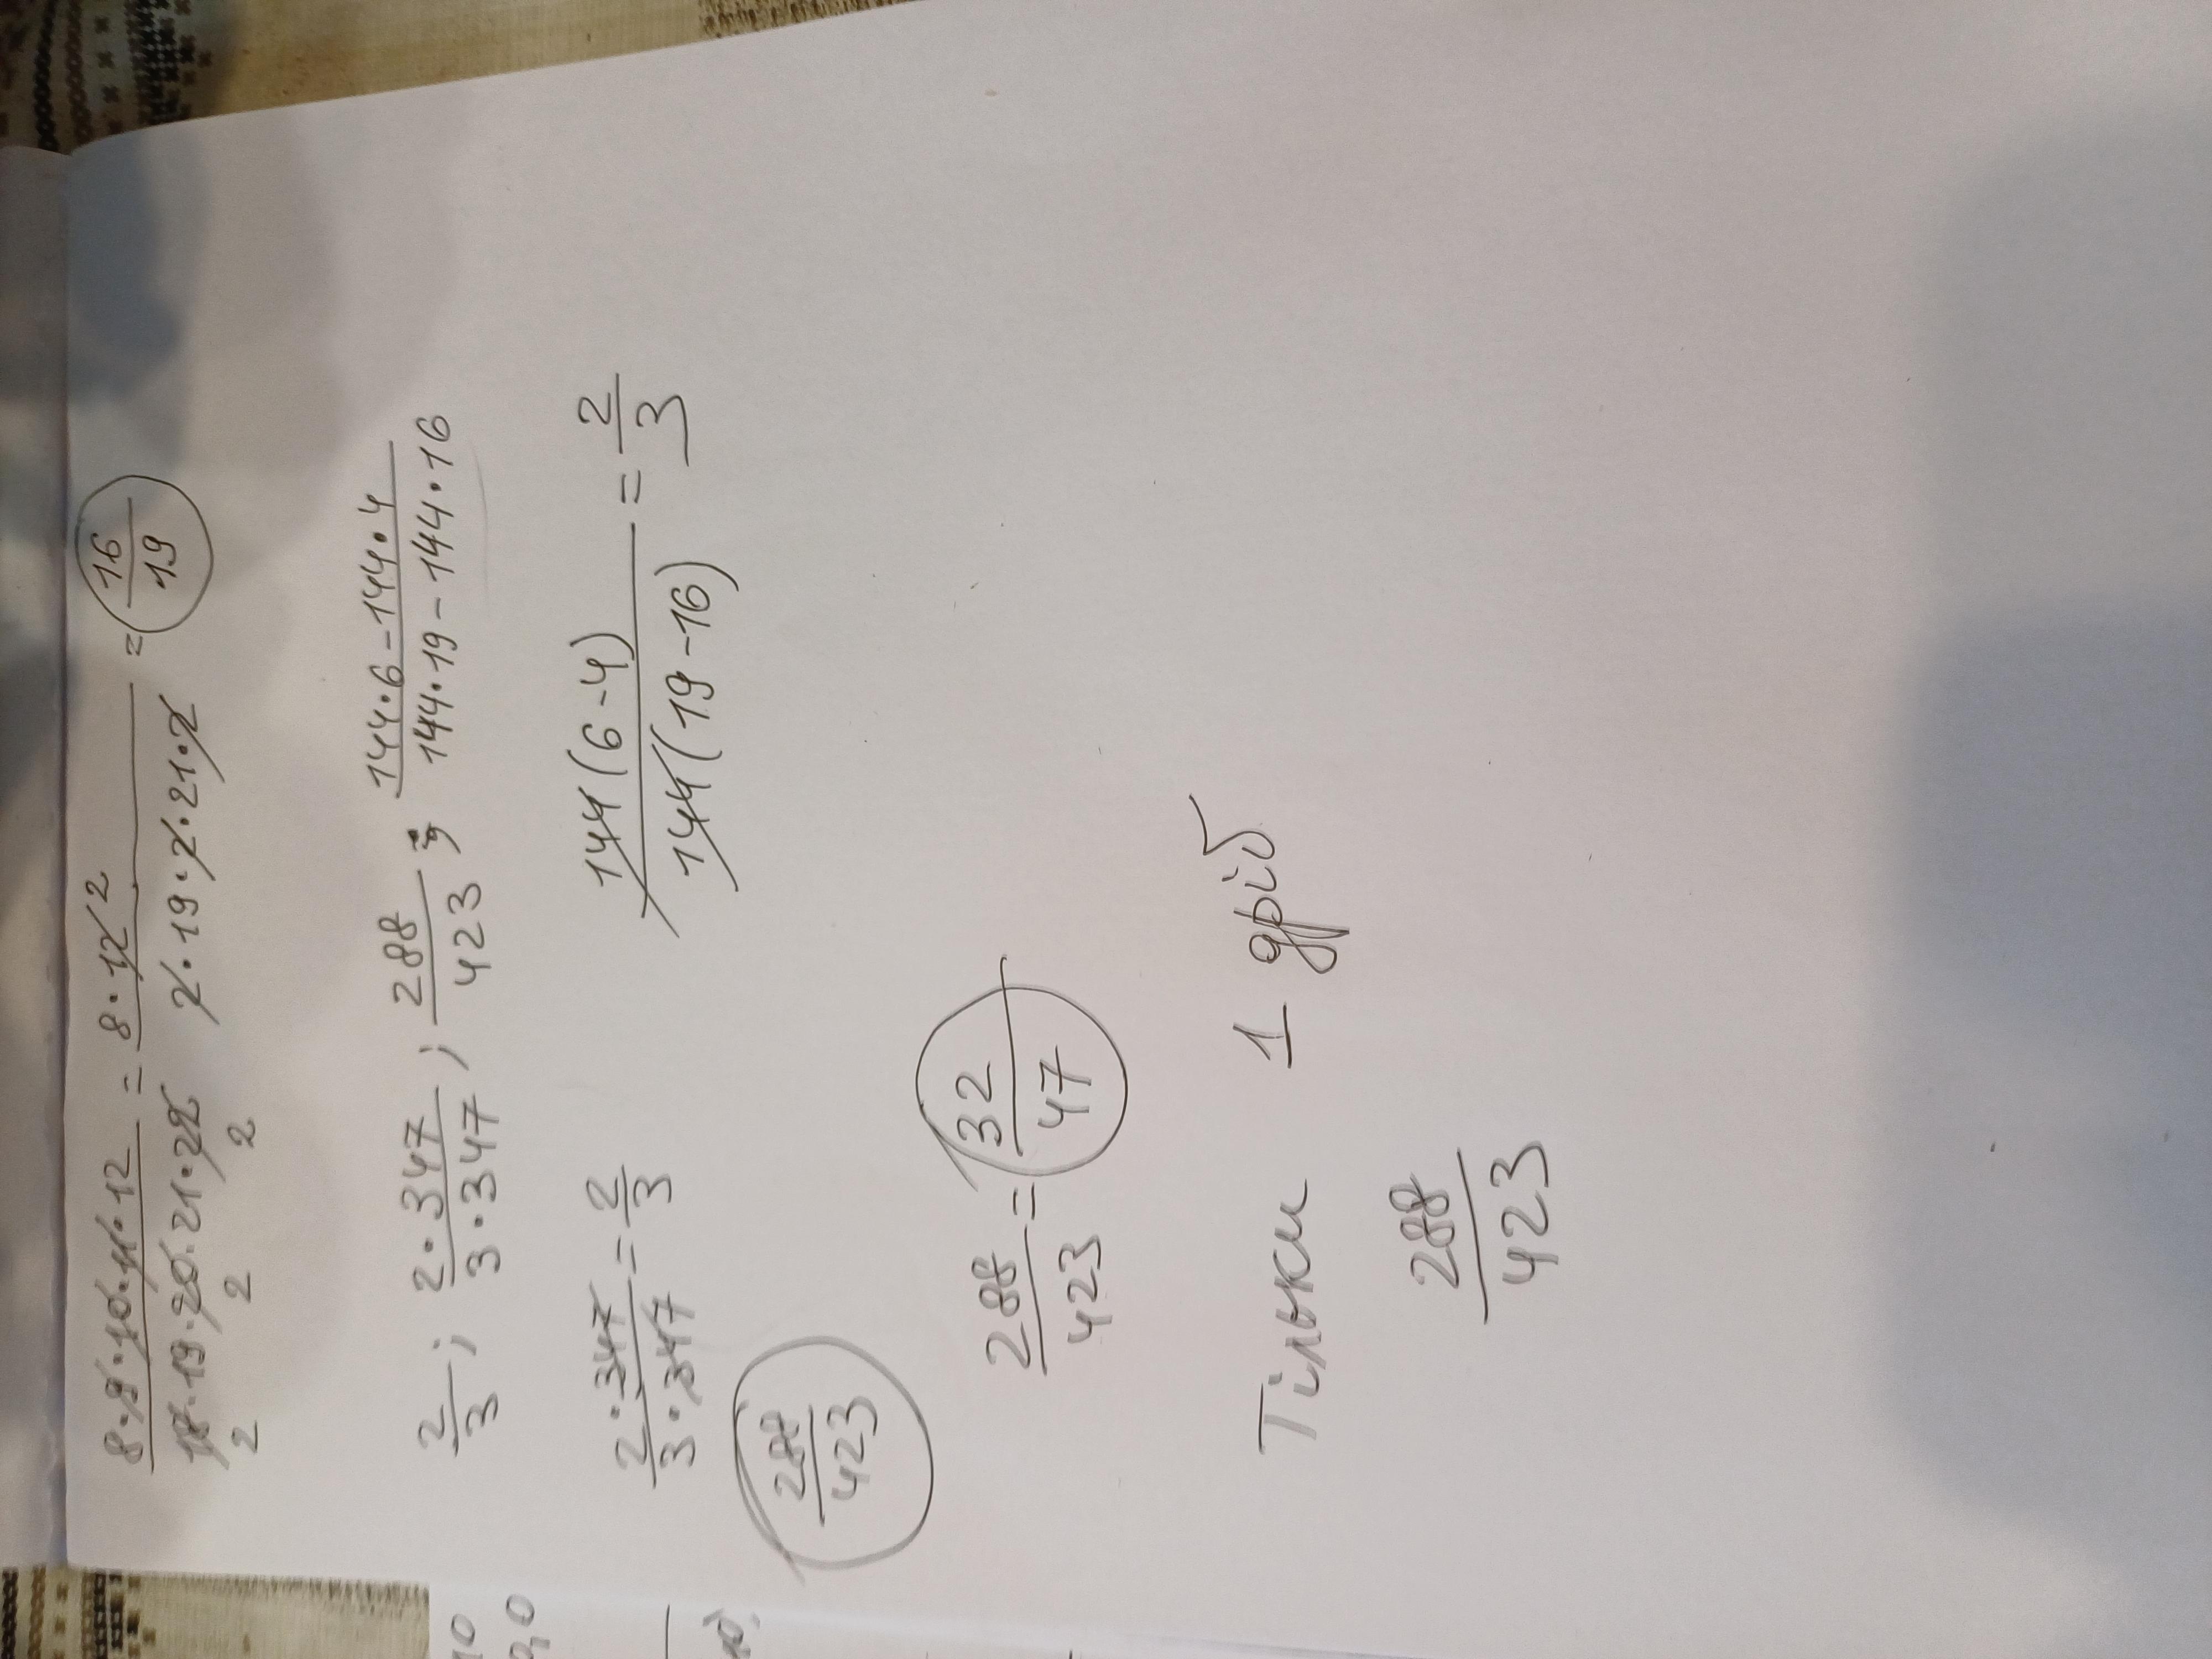 8·9·10·11·12 / 18·19·20·21·22 = 8·12 2 / 2·19·2·21·2 = 16/19
2 2 2
2/3 ; 2·347 / 3·347 ; 288/423 ; 144·6-144·4 / 144·19-144·16
2·347 / 3·347 = 2/3 144(6-4) / 144(19-16) = 2/3
288/423
288/423 = 32/47
Тільки 1 дріб
288/423